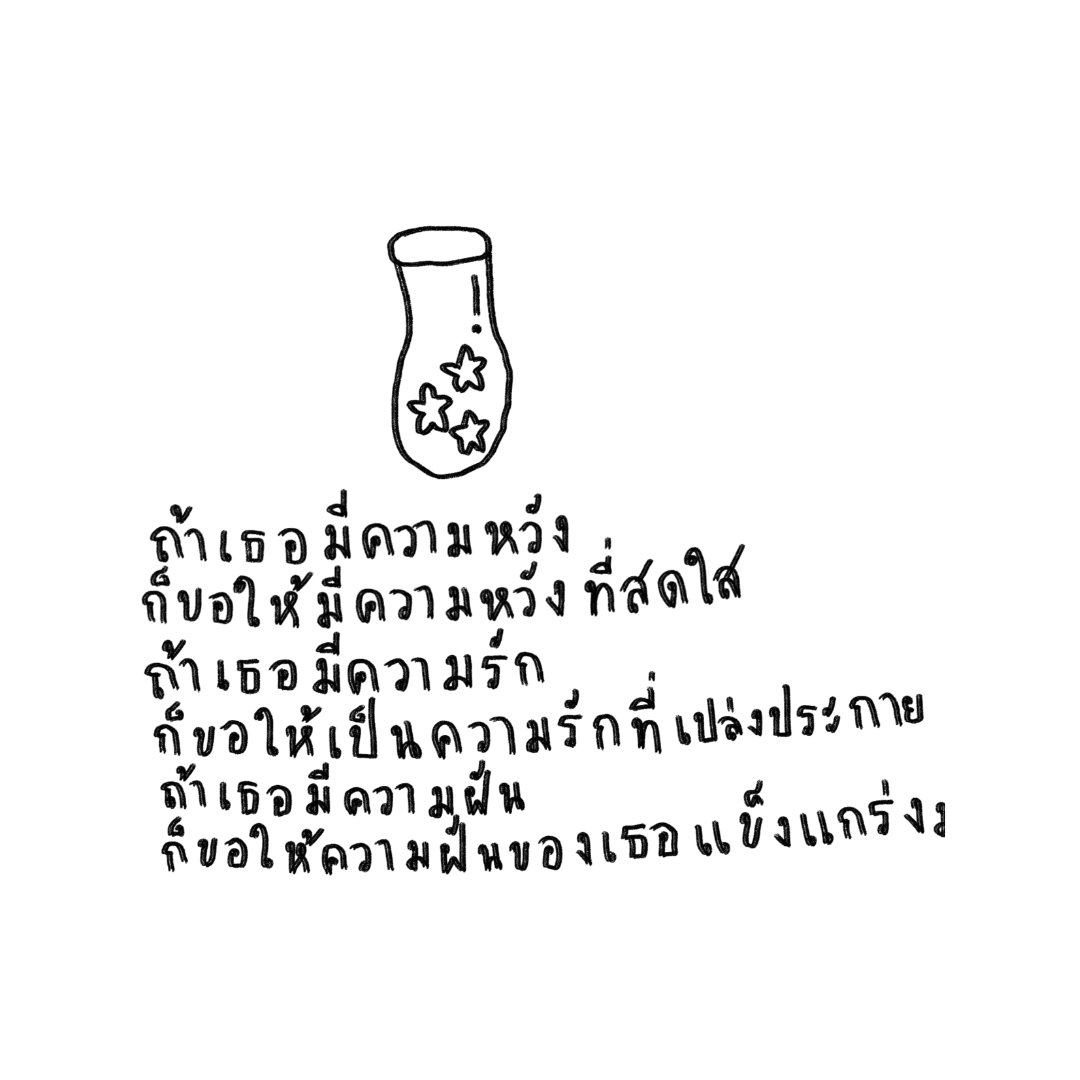 ถ้าเธอมีความหวัง
ก็ขอให้มีความหวังที่สดใส
ถ้าเธอมีความรัก
ก็ขอให้เป็นความรักที่เปล่งประกาย
ถ้าเธอมีความฝัน
ก็ขอให้ความฝันของเธอแข็งแกร่ง